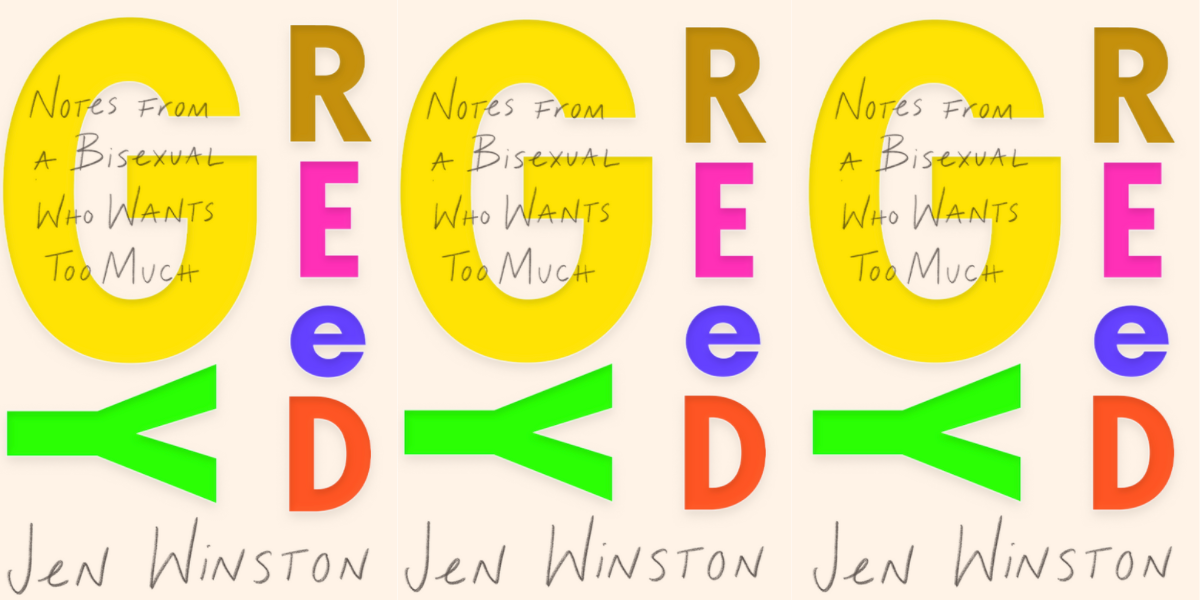 GREeDY
Notes From
A Bisexual
Who Wants
Too Much
Jen Winston
GREeDY
Notes From
A Bisexual
Who Wants
Too Much
Jen Winston
GREeDY
Notes From
A Bisexual
Who Wants
Too Much
Jen Winston